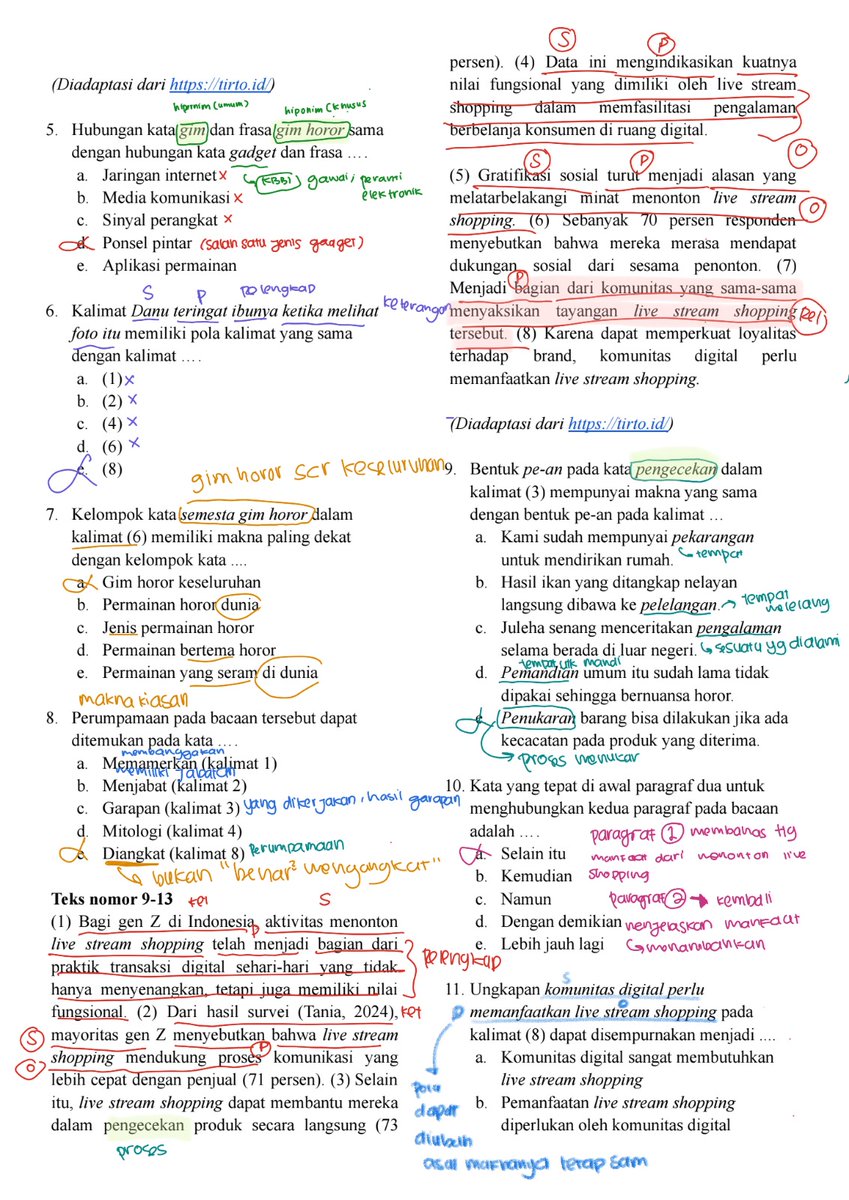 (Diadaptasi dari https://tirto.id/)
hiprnim (umum)
hiponim (khusus
5. Hubungan kata gim dan frasa gim horor sama
dengan hubungan kata gadget dan frasa ....
a. Jaringan internet x
(KBBI) gawai, peranti
elektronik
b. Media komunikasi x
c. Sinyal perangkat x
d. Ponsel pintar (salah satu jenis gadget)
e. Aplikasi permainan
S P pelengkap
6. Kalimat Danu teringat ibunya ketika melihat
keterangan
foto itu memiliki pola kalimat yang sama
dengan kalimat ....
a. (1) x
b. (2) x
c. (4) x
d. (6) x
e. (8)
gim horor scr keseluruhan
7. Kelompok kata semesta gim horor dalam
kalimat (6) memiliki makna paling dekat
dengan kelompok kata ....
a. Gim horor keseluruhan
b. Permainan horor dunia
c. Jenis permainan horor
d. Permainan bertema horor
e. Permainan yang seram di dunia
makna kiasan
8. Perumpamaan pada bacaan tersebut dapat
ditemukan pada kata ....
membanggakan
a. Memamerkan (kalimat 1)
memiliki jabatan
b. Menjabat (kalimat 2)
c. Garapan (kalimat 3) yang dikerjakan, hasil garapan
d. Mitologi (kalimat 4)
e. Diangkat (kalimat 8) Perumpamaan
bukan "benar² mengangkat"
Teks nomor 9-13
ket S
(1) Bagi gen Z di Indonesia, aktivitas menonton
P
live stream shopping telah menjadi bagian dari
praktik transaksi digital sehari-hari yang tidak
pelengkap
hanya menyenangkan, tetapi juga memiliki nilai
fungsional. (2) Dari hasil survei (Tania, 2024), ket
S mayoritas gen Z menyebutkan bahwa live stream
P
O shopping mendukung proses komunikasi yang
lebih cepat dengan penjual (71 persen). (3) Selain
itu, live stream shopping dapat membantu mereka
dalam pengecekan produk secara langsung (73
proses
S P
persen). (4) Data ini mengindikasikan kuatnya
nilai fungsional yang dimiliki oleh live stream
shopping dalam memfasilitasi pengalaman
berbelanja konsumen di ruang digital.
O
S P
(5) Gratifikasi sosial turut menjadi alasan yang
melatarbelakangi minat menonton live stream
O
shopping. (6) Sebanyak 70 persen responden
menyebutkan bahwa mereka merasa mendapat
dukungan sosial dari sesama penonton. (7)
P
Menjadi bagian dari komunitas yang sama-sama
menyaksikan tayangan live stream shopping
Pel
tersebut. (8) Karena dapat memperkuat loyalitas
terhadap brand, komunitas digital perlu
memanfaatkan live stream shopping.
(Diadaptasi dari https://tirto.id/)
9. Bentuk pe-an pada kata pengecekan dalam
kalimat (3) mempunyai makna yang sama
dengan bentuk pe-an pada kalimat …
a. Kami sudah mempunyai pekarangan
untuk mendirikan rumah. tempat
b. Hasil ikan yang ditangkap nelayan
langsung dibawa ke pelelangan. tempat
melelang
c. Juleha senang menceritakan pengalaman
selama berada di luar negeri. sesuatu yg dialami
tempat utk mandi
d. Pemandian umum itu sudah lama tidak
dipakai sehingga bernuansa horor.
e. Penukaran barang bisa dilakukan jika ada
kecacatan pada produk yang diterima.
proses menukar
10. Kata yang tepat di awal paragraf dua untuk
menghubungkan kedua paragraf pada bacaan
adalah ....
paragraf 1 membahas ttg
a. Selain itu manfaat dari menonton live
b. Kemudian shopping
c. Namun paragraf 2 → kembali
d. Dengan demikian menjelaskan manfaat
e. Lebih jauh lagi menambahkan
S
11. Ungkapan komunitas digital perlu
P O
memanfaatkan live stream shopping pada
kalimat (8) dapat disempurnakan menjadi ....
a. Komunitas digital sangat membutuhkan
live stream shopping
b. Pemanfaatan live stream shopping
diperlukan oleh komunitas digital
pola
dapat
diubah
asal maknanya tetap sam